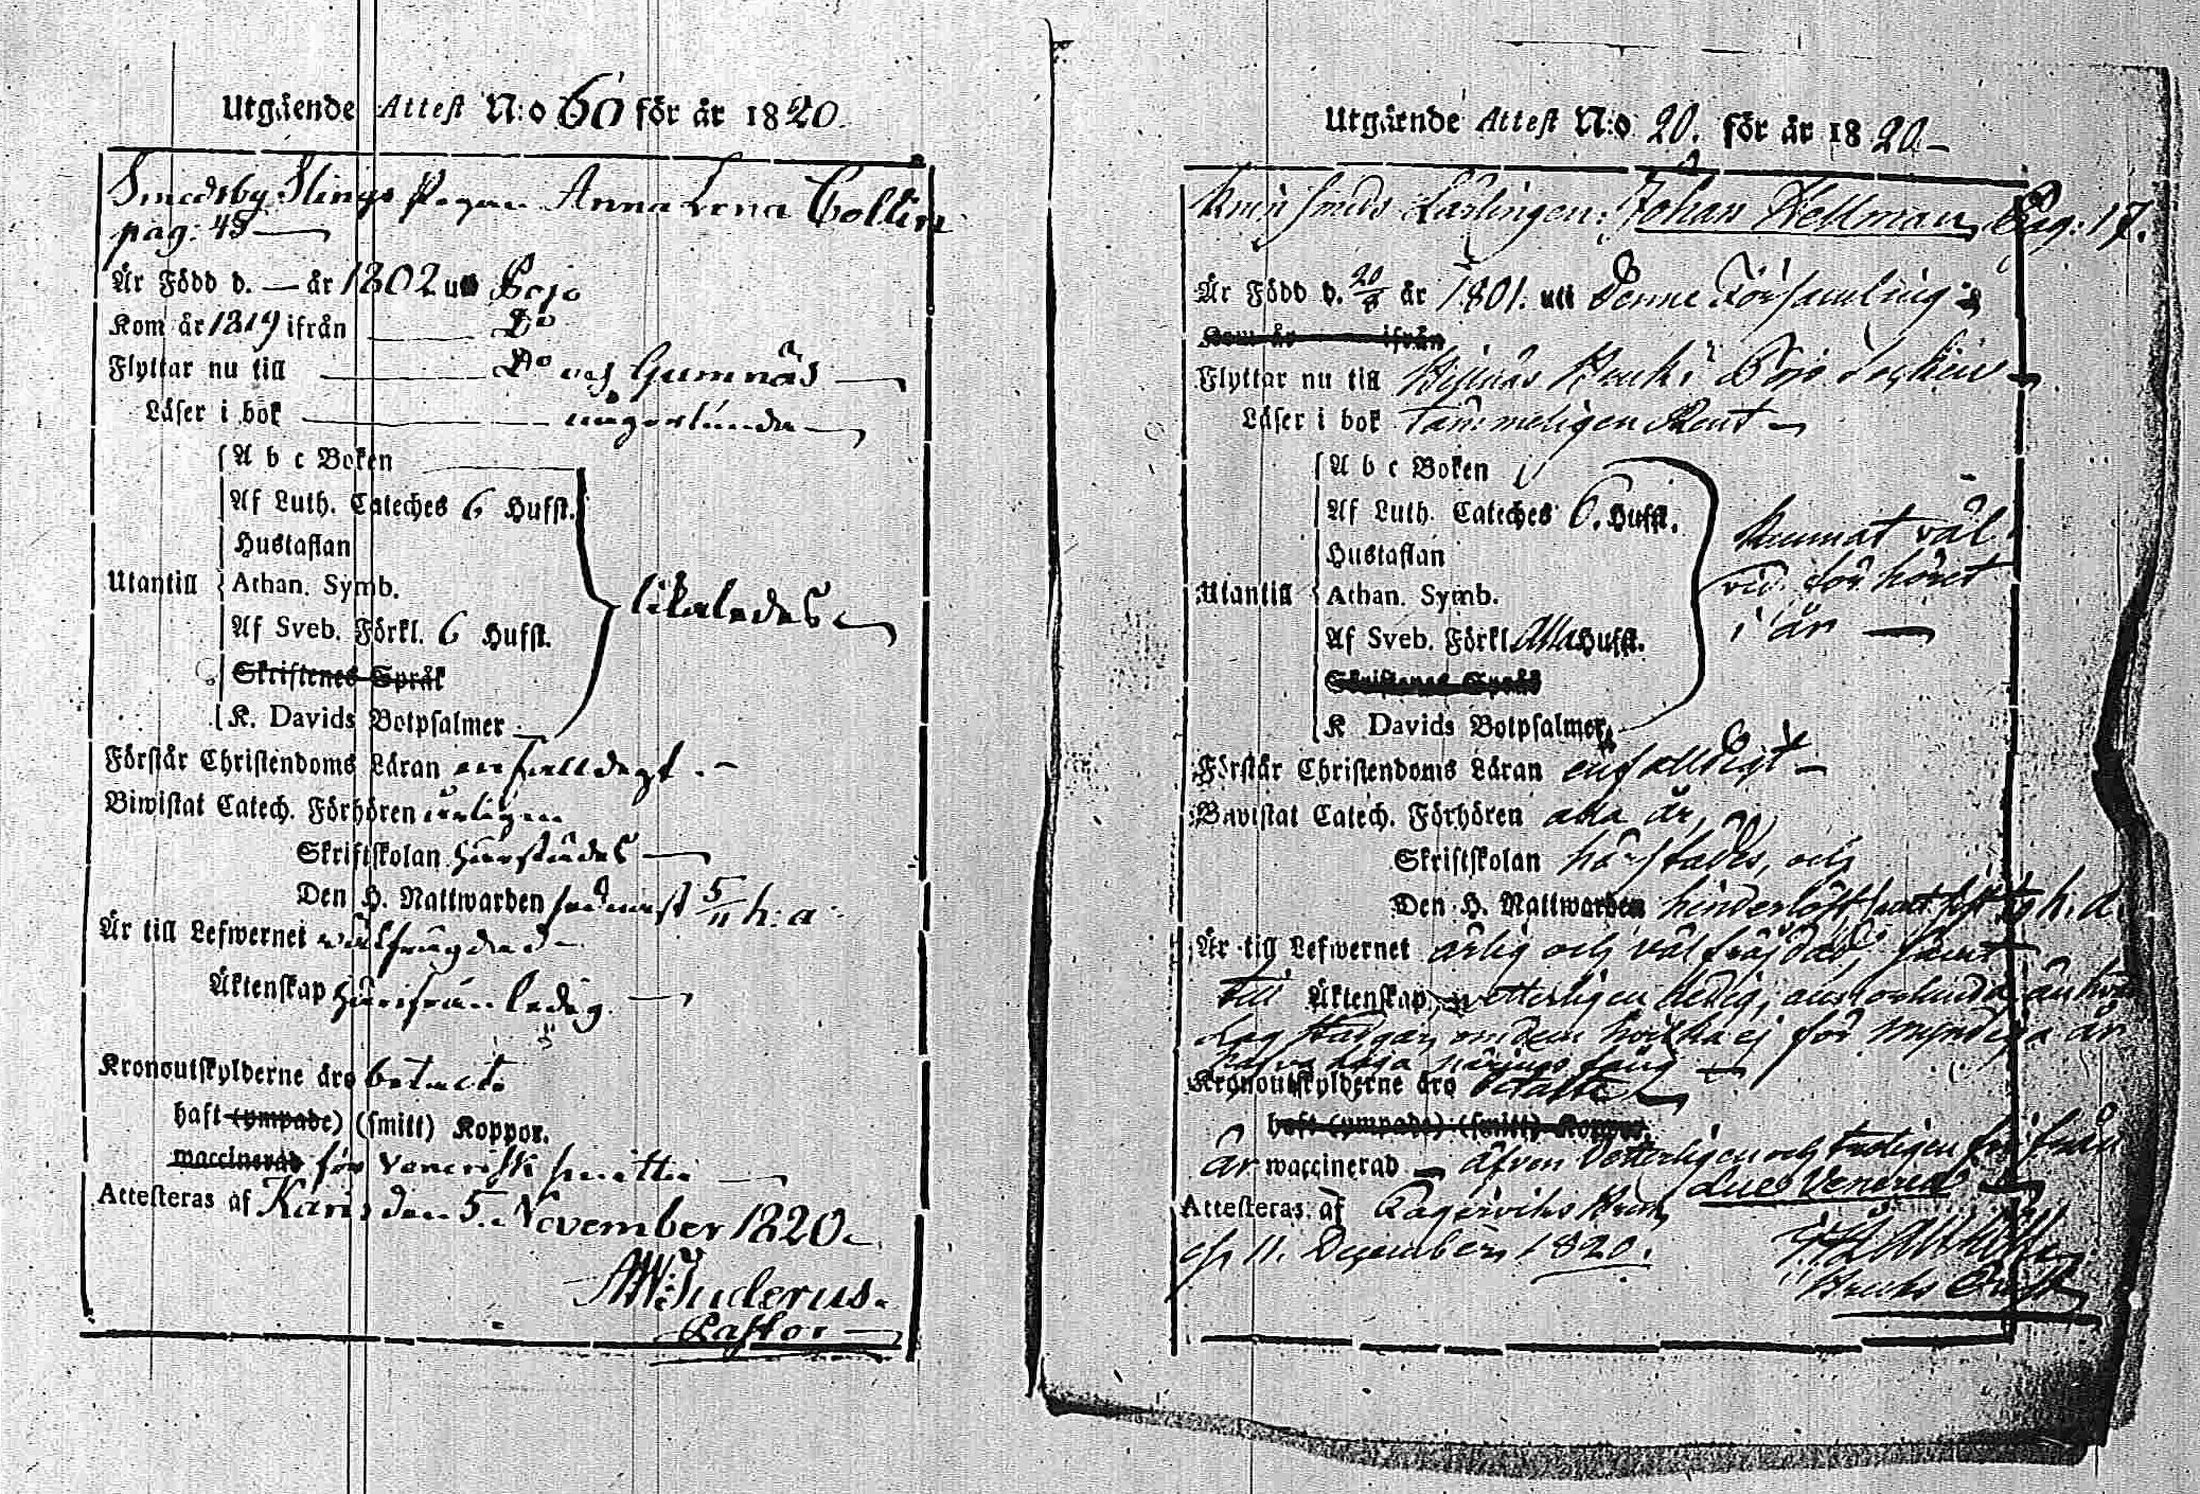 Utgående Attest N:o 60 för år 1820.
Smedsby Slings Pigan Anna Lena Collin
pag: 48
Är Född d. — år 1802 uti Pojo
Kom år 1819 ifrån D:o
Flyttar nu till D:o och Gumnäs
Läser i bok någorlunda
A b c Boken
Af Luth. Cateches 6 Hufst.
Hustaflan
Utantill Athan. Symb. likaledes
Af Sveb. Förkl. 6 Hufst.
Skriftenes Språk
K. Davids Botpsalmer
Förstår Christendoms Läran enfalldigt.
Biwistat Catech. Förhören årligen
Skriftskolan härstädes
Den H. Nattwarden främst 5/11 h: a:
Är till Lefwernet välfrägdad
Äktenskap härifrån ledig.
Kronoutskylderne äro betalte
haft (ympade) (smitt) Koppor.
waccinerad för Venerisk smitta
Attesteras af Karis den 5. November 1820.
Juderus.
Pastor
Utgående Attest N:o 20. för år 1820.
Lärlingen: Johan Hellman, Pag: 17.
Är Född d. 20/8 år 1801. uti Denne Församling
Kom år ifrån
Flyttar nu till Bruk i Pojo Sockn
Läser i bok Tämmeligen Rent
A b c Boken
Af Luth. Cateches 6. Hufst.
Hustaflan
Utantill Athan. Symb.
Af Sveb. Förkl. Alla Hufst.
Skriftenes Språk
K Davids Botpsalmer
kunnat väl
vid förhöret
i år
Förstår Christendoms Läran enfalldigt
Biwistat Catech. Förhören alla år,
Skriftskolan härstädes, och
Den H. Nattwarden hinderlöst, samt sist h. a.
Är till Lefwernet ärlig och välfräjdad, samt
Till Äktenskap, vetterligen ledig,
om dem hvilka ej för myndiga år
Kronoutskylderne äro betalte
haft (ympade) (smitt) Koppor
är waccinerad äfven Vetterligen och troligen fri från
Lues Venerea
Attesteras af Fagerviks Bruk
d. 11. December 1820.
Bruks Pred.